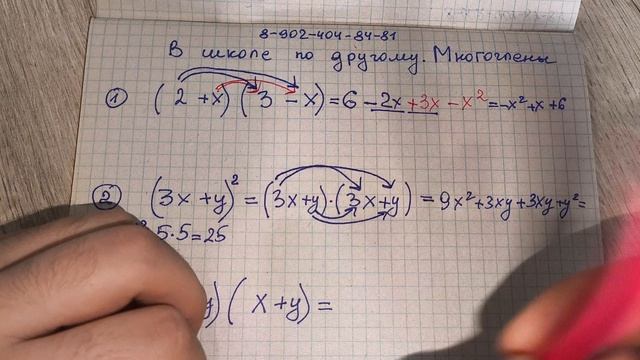 8-902-404-84-81
В школе по другому. Многочлены
① (2+x)(3-x)=6-2x+3x-x²=-x²+x+6
② (3x+y)²=(3x+y)·(3x+y)=9x²+3xy+3xy+y²=
5·5=25
y)(x+y)=